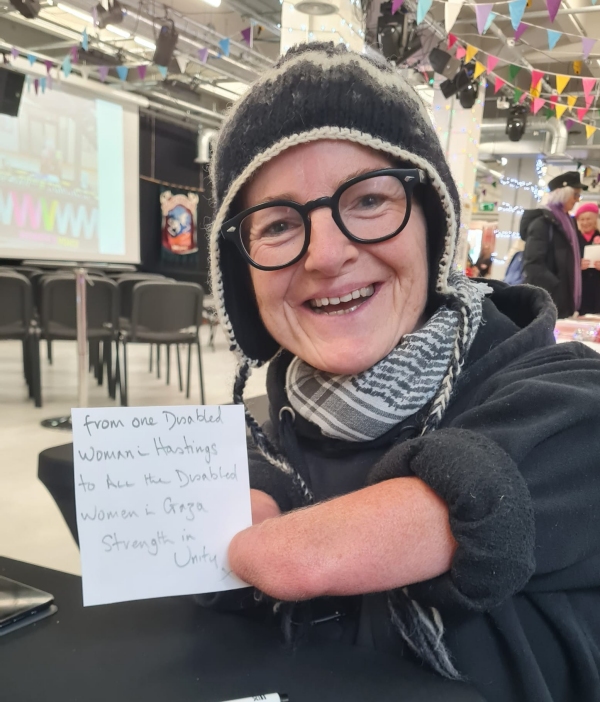 from one Disabled
Woman in Hastings
to ALL the Disabled
women in Gaza
Strength in
Unity